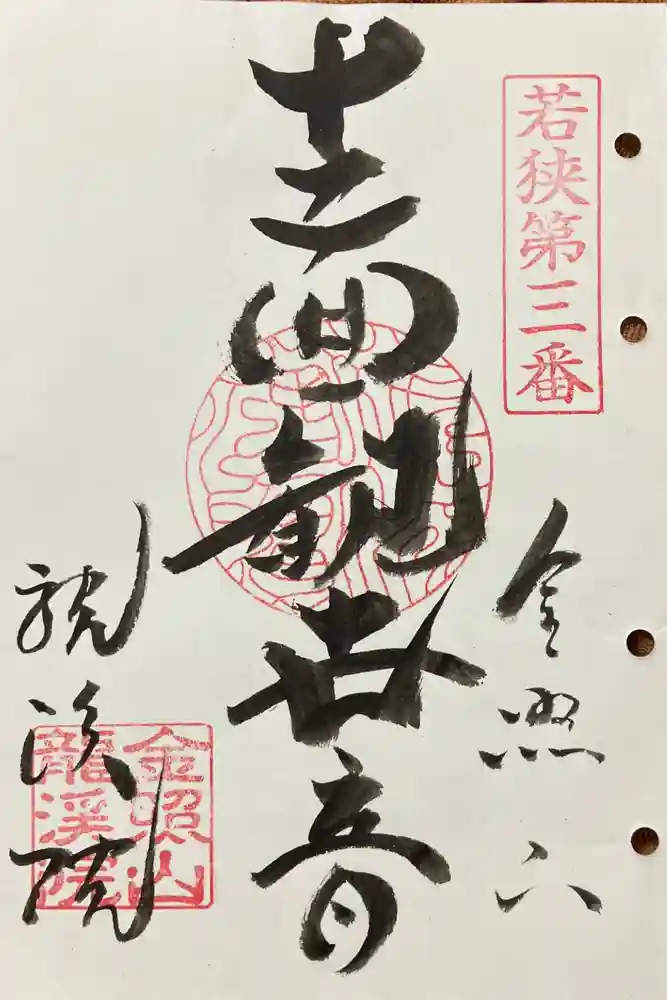 若狭第三番
金照山
十一面観世音
龍溪院
金照山
龍溪院